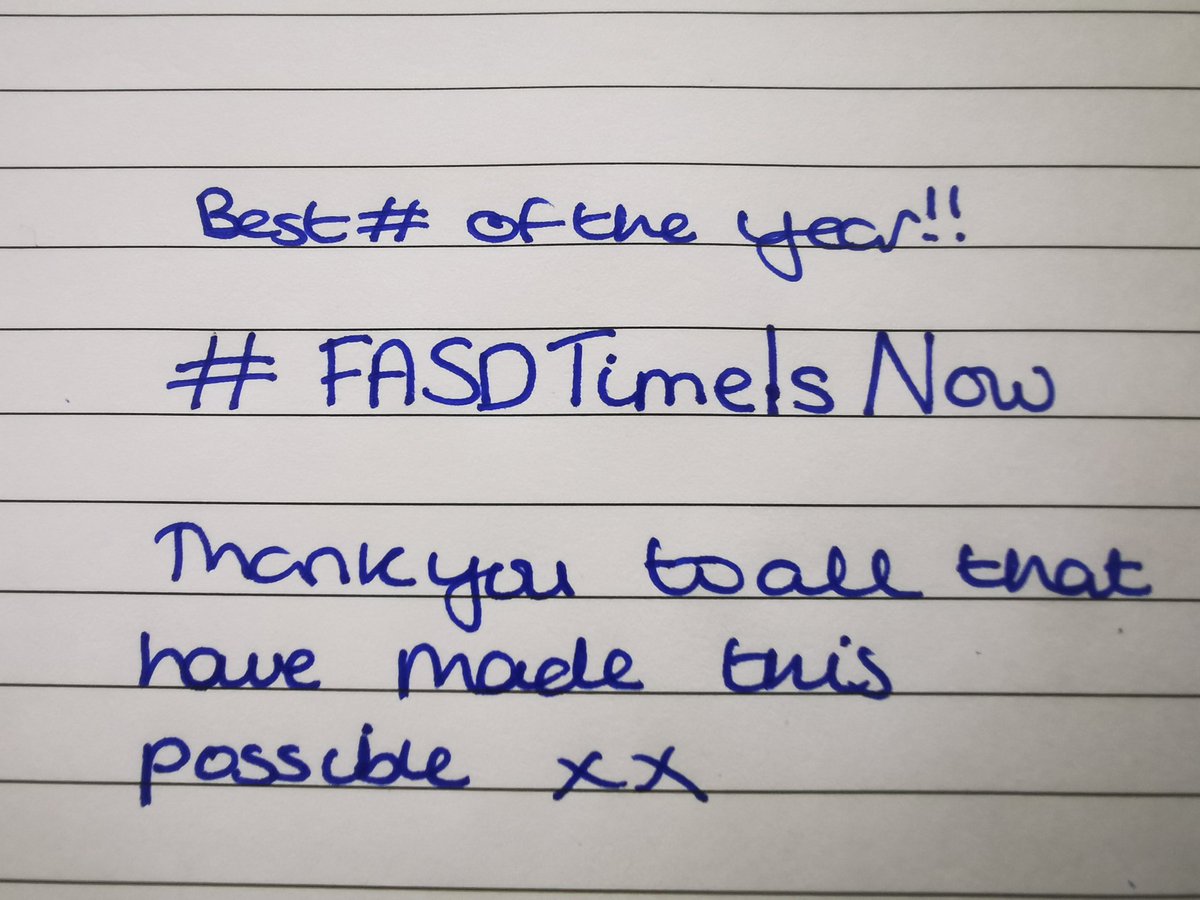 Best # of the year!!
# FASDTimeIs Now
Thank you to all that
have made this
possible xx